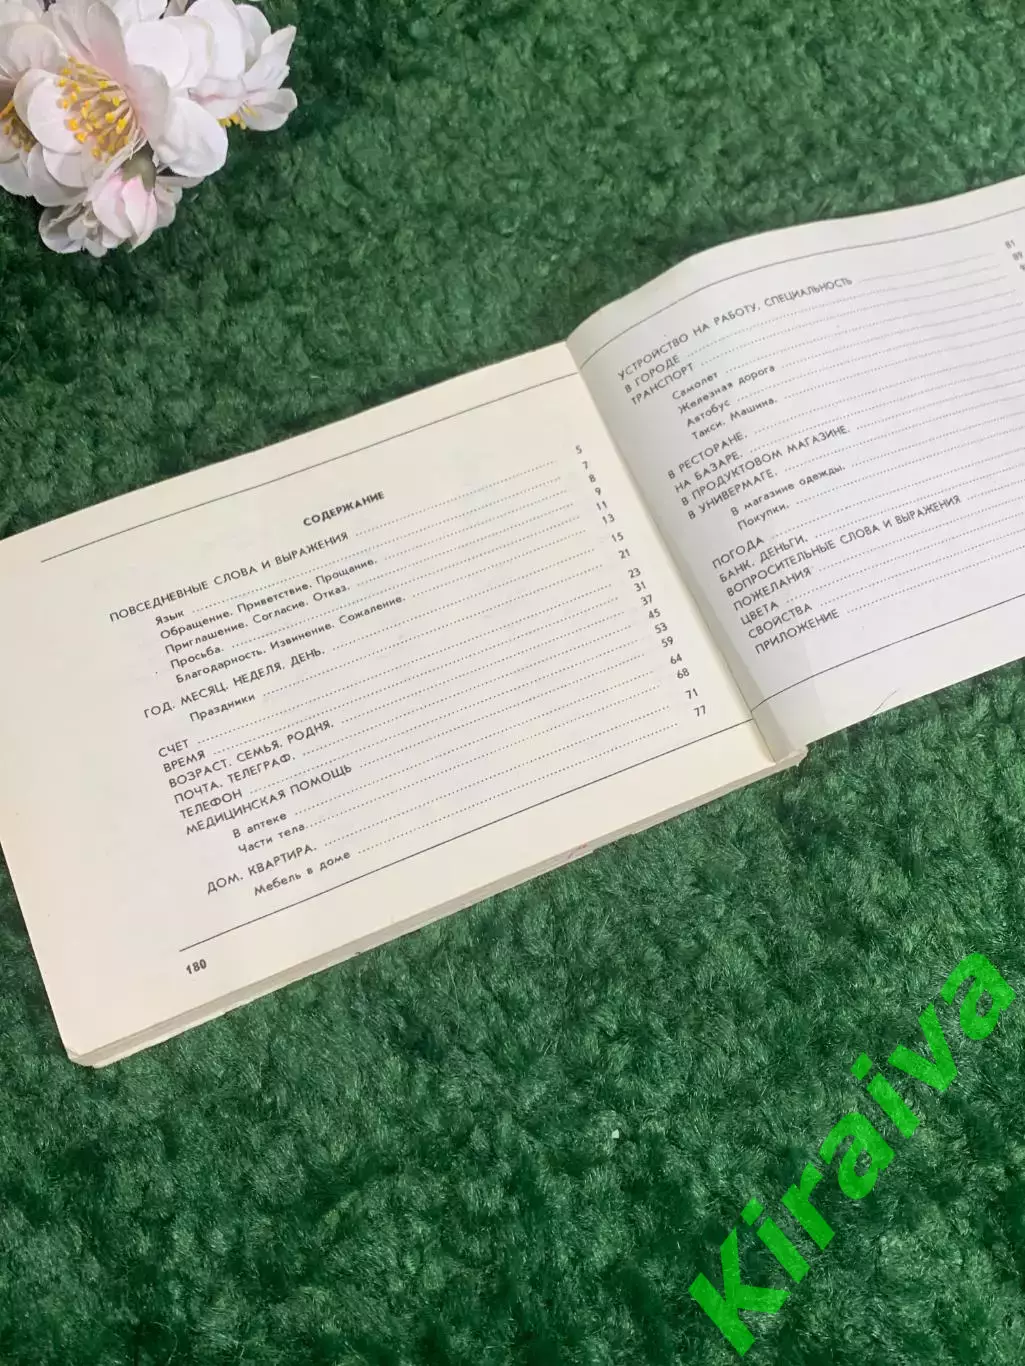 СОДЕРЖАНИЕ
ПОВСЕДНЕВНЫЕ СЛОВА И ВЫРАЖЕНИЯ 5
Язык 7
Обращение. Приветствие. Прощание. 8
Приглашение. Согласие. Отказ. 9
Просьба. 11
Благодарность. Извинение. Сожаление. 13
ГОД. МЕСЯЦ. НЕДЕЛЯ. ДЕНЬ. 15
Праздники 21
СЧЕТ 23
ВРЕМЯ 31
ВОЗРАСТ. СЕМЬЯ. РОДНЯ. 37
ПОЧТА. ТЕЛЕГРАФ. 45
ТЕЛЕФОН 53
МЕДИЦИНСКАЯ ПОМОЩЬ 59
В аптеке 64
Части тела. 68
ДОМ. КВАРТИРА. 71
Мебель в доме 77
180
УСТРОЙСТВО НА РАБОТУ. СПЕЦИАЛЬНОСТЬ 81
В ГОРОДЕ 89
ТРАНСПОРТ
Самолет
Железная дорога
Автобус
Такси. Машина.
В РЕСТОРАНЕ.
НА БАЗАРЕ.
В ПРОДУКТОВОМ МАГАЗИНЕ.
В УНИВЕРМАГЕ.
В магазине одежды.
Покупки.
ПОГОДА
БАНК. ДЕНЬГИ.
ВОПРОСИТЕЛЬНЫЕ СЛОВА И ВЫРАЖЕНИЯ
ПОЖЕЛАНИЯ
ЦВЕТА
СВОЙСТВА
ПРИЛОЖЕНИЕ
Kiraiva